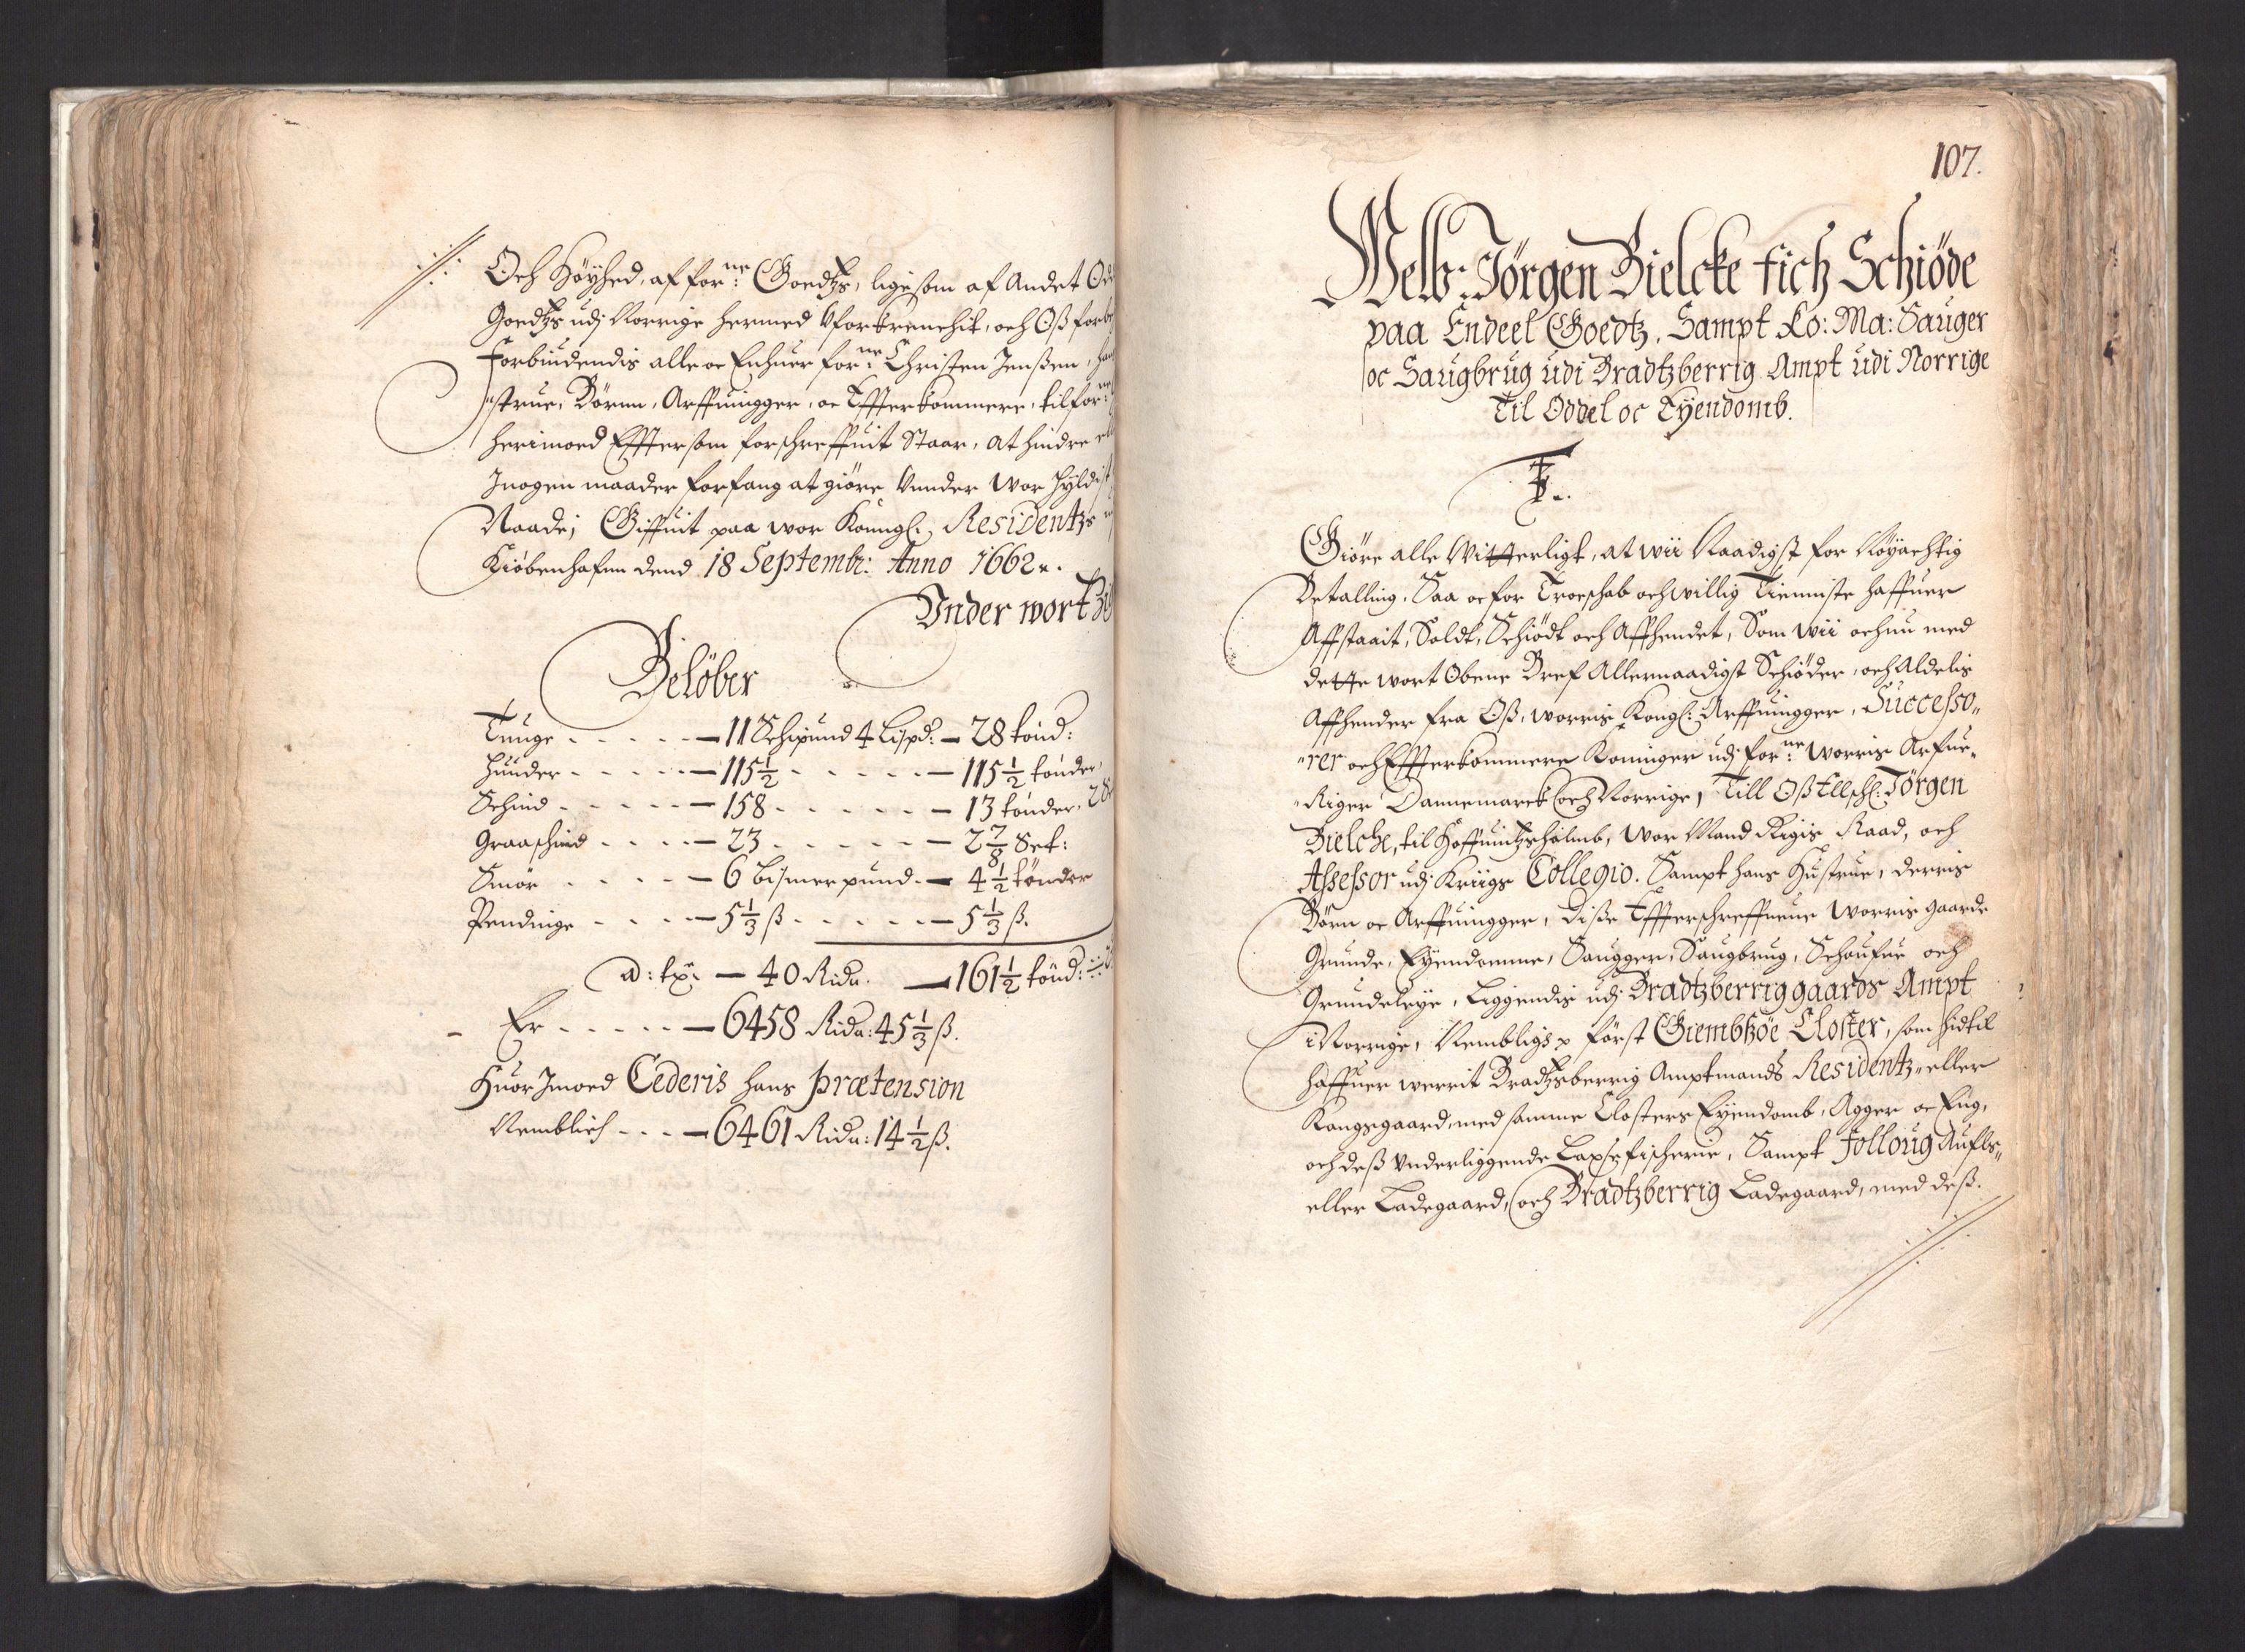 Och Höyhed, af for.ne Goedtzs, ligesom af Andet
Goedtzs udj Norrige hermed Uforkrencket, och Oß
Forbiudendis alle oc Enhuer for.ne Christen Jenßen,
strue, Börnn, Arffuingger, oc Effterkommere, til
herimoed Efftersom forschreffuit Staar, at hindre
Jnogen maader forfang at giöre Vunder Wor Hyldist
Naade; Giffuit paa wor Konngl. Residentzs
Kiöbenhafnn dend 18 Septembr: Anno 1662.
Vnder wort
Belöber
Tunge - - - - - 11 Schipund 4 Lispd: - 28 tönd:
Huuder - - - - - 115½ - - - - - 115½ tönder
Schind - - - - - 158 - - - - - 13 tönder.
Graaschind - - - - 23 - - - - - 2 7/8 Set:
Smör - - - - 6 Bismerpund. - 4½ tönder
Pendinge - - - - 5⅓ ß - - - - - 5⅓ ß.
40 Rida. - 161½ tönd:
Er - - - - - 6458 Rida: 45⅓ ß.
Huor Jmoed Cederis hans prætension
Nemblich - - - 6461 Rida: 14½ ß.
107.
Welb: Jörgen Bielcke fich Schiöde
paa Endeel Goedtz. Sampt Ko: Ma: Sauger
oc Saugbrug udi Bradtzberrig Ampt udi Norrige
Til Oddel oc Eyendomb.
F.
Giöre alle Vitterligt, at wii Naadigst for Nöyachtig
Betalling. Saa oc for Troeschab och willig Tienniste haffuer
Affstaait, Soldt, Schiödt och Affhendet, Som wii och nu med
dette wort Obene Bref Allernaadigst Schiöder, och Aldelis
Affhender fra Oß, worris Kongl: Arffuingger, Successo„
„rer och Effterkommere Koninger udj for.ne Worris Arfue„
„Riger Dannemarck och Norrige, Till Oß Ellschl: Jörgen
Bielche, til Hoffuintzholmb, Wor Mand Rigis Raad, och
Assessor udj Kriigs Collegio. Sampt hans Hustrue, derris
Börn oc Arffuingger, diße Effterschreffneue Worris gaarde
Grunde, Eyendomme, Saugger, Saugbrug, Schoufue och
Grundeleye, Liggendis udj Bradtzberriggaards Ampt
i Norrige, Nembligs först Giembsöe Closter, som hidtil
haffuer werrit Bradtzberrig Amptmands Residentz eller
Kongsgaard, med samme Closters Eyendomb, Agger oc Eng,
och deß Vnderliggende Laxsefischerie, Sampt Folloug Aufls„
eller Ladegaard, och Bradtzberrig Ladegaard, med deß.